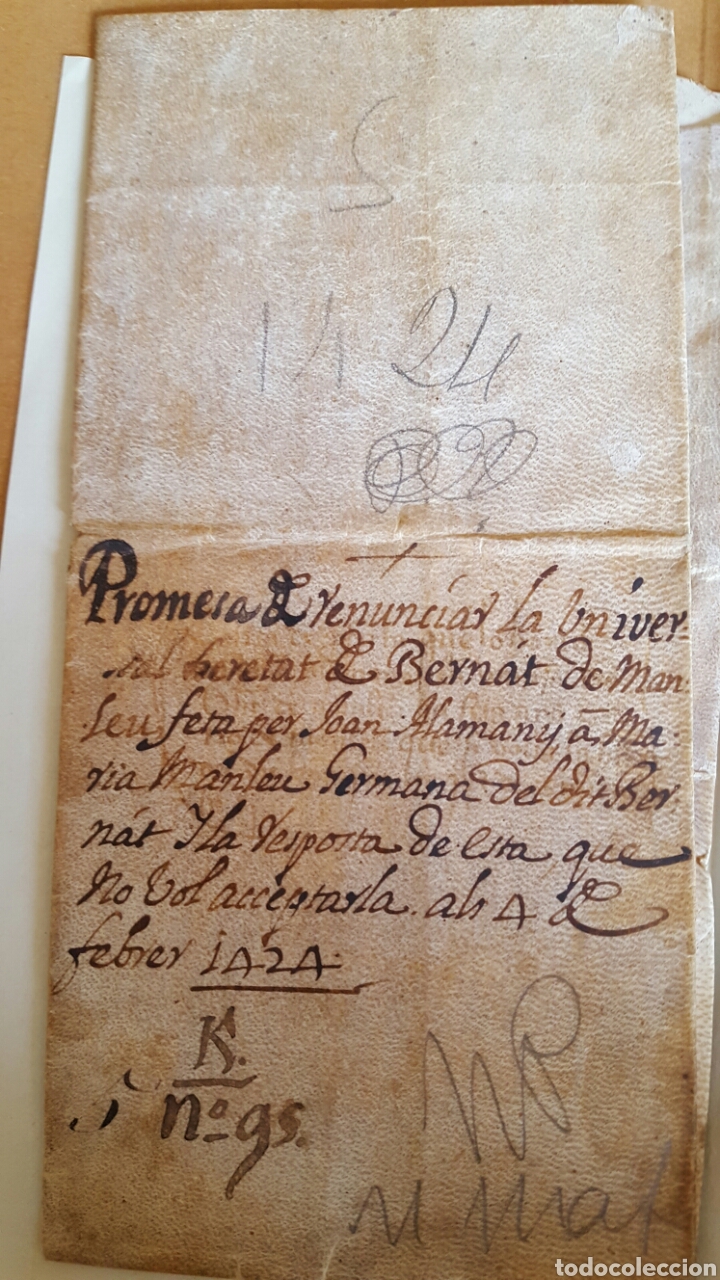 S
1424
+
Promesa de renunciar la Univer-
sal heretat de Bernát de Man-
leu feta per Joan Alamany, á Ma-
ria Manleu Germana del dit Ber-
nát Y la resposta de esta que
No Vol acceptarla als 4 de
febrer 1424.
K.
5 nº 95.
todocoleccion